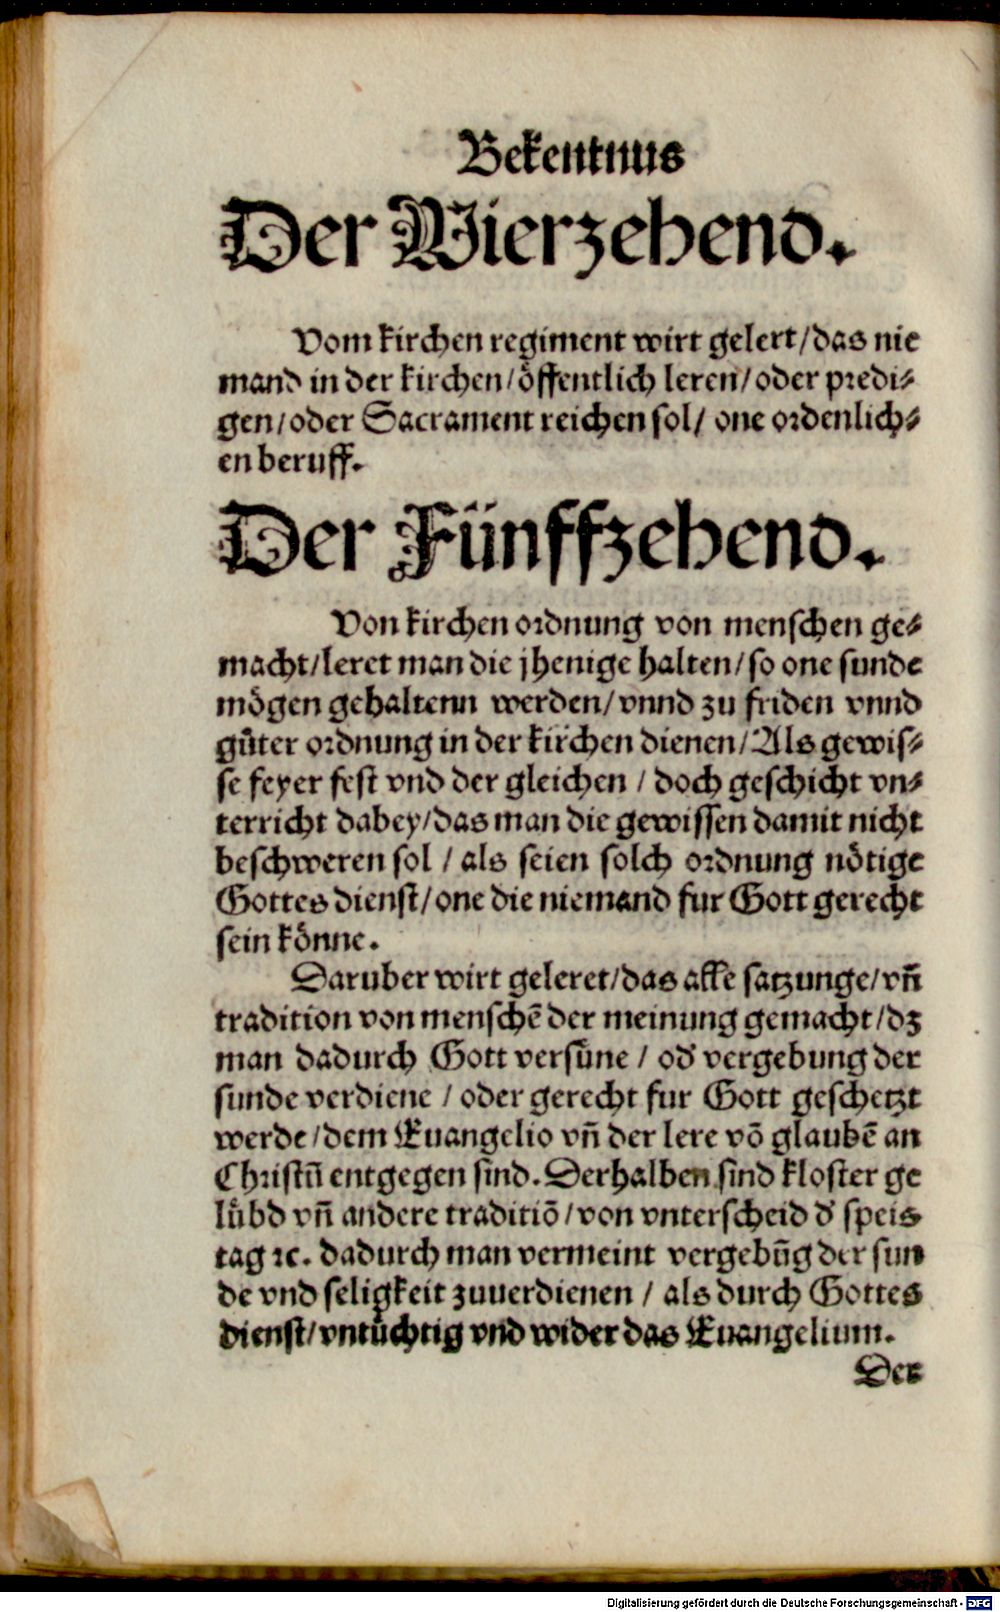 Bekentnus
Der Vierzehend.
Vom kirchen regiment wirt gelert/das nie
mand in der kirchen/öffentlich leren/oder predi⸗
gen/oder Sacrament reichen sol/ one ordenlich⸗
en beruff.
Der Fünffzehend.
Von kirchen ordnung von menschen ge⸗
macht/leret man die jhenige halten/so one sunde
mögen gehaltenn werden/vnnd zu friden vnnd
gůter ordnung in der kirchen dienen/Als gewis⸗
se feyer fest vnd der gleichen / doch geschicht vn⸗
terricht dabey/das man die gewissen damit nicht
beschweren sol / als seien solch ordnung nötige
Gottes dienst/one die niemand fur Gott gerecht
sein könne.
Daruber wirt geleret/das alle satzunge/vñ
tradition von menschē der meinung gemacht/dz
man dadurch Gott versüne / od' vergebung der
sunde verdiene / oder gerecht fur Gott geschetzt
werde/dem Euangelio vñ der lere vō glaubē an
Christū entgegen sind. Derhalben sind kloster ge
lübd vñ andere traditiō/von vnterscheid d' speis
tag ꝛc. dadurch man vermeint vergebūg der sun
de vnd seligkeit zuuerdienen / als durch Gottes
dienst/vntüchtig vnd wider das Euangelium.
Der
Digitalisierung gefördert durch die Deutsche Forschungsgemeinschaft - DFG